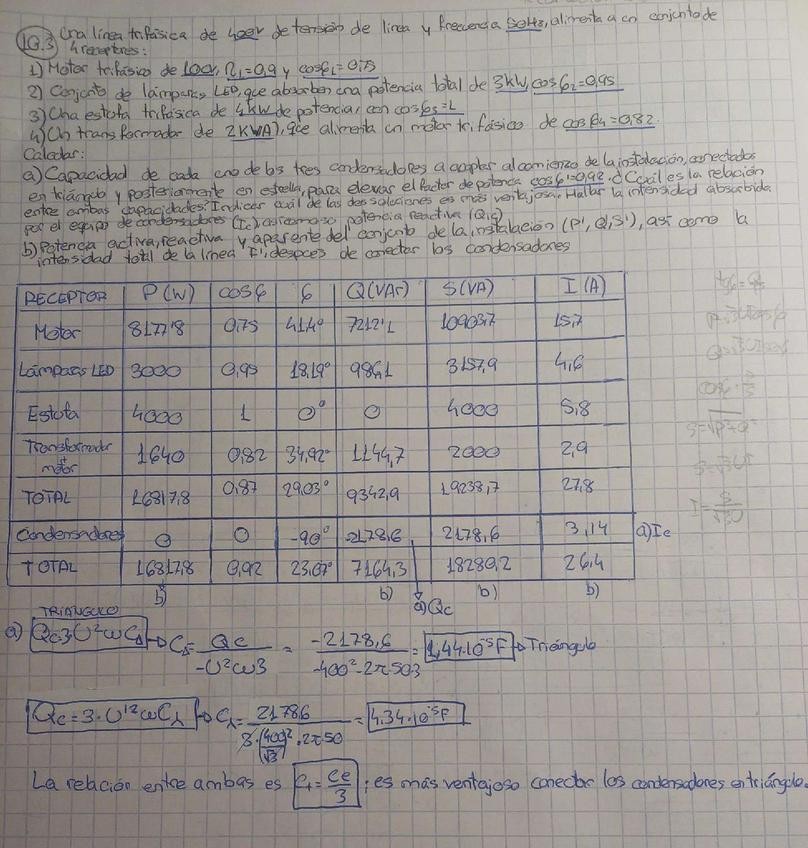 10.3 Una línea trifásica de 400V de tensión de línea y frecuencia 50Hz, alimenta a un conjunto de
4 receptores:
1) Motor trifásico de 10CV, η1=0,9 y cosφ1=0,75
2) Conjunto de lámparas LED, que absorben una potencia total de 3kW, cosφ2=0,95
3) Una estufa trifásica de 4kW de potencia, con cosφ3=1
4) Un transformador de 2KVA, que alimenta un motor trifásico de cosφ4=0,82.
Calcular:
a) Capacidad de cada uno de los tres condensadores a acoplar al comienzo de la instalación, conectados
en triángulo y posteriormente en estrella, para elevar el factor de potencia cosφ'=0,92. ¿Cuál es la relación
entre ambas capacidades? Indicar cuál de las dos soluciones es más ventajosa. Hallar la intensidad absorbida
por el equipo de condensadores (Ic), así como su potencia reactiva (Qc)
b) Potencia activa, reactiva y aparente del conjunto de la instalación (P', Q', S'), así como la
intensidad total de la línea I', después de conectar los condensadores
RECEPTOR P(W) cosφ φ Q(VAr) S(VA) I(A)
Motor 8177'8 0,75 41'4° 7212'1 10903,7 15,7
Lámparas LED 3000 0,95 18,19° 986,1 3157,9 4,6
Estufa 4000 1 0° 0 4000 5,8
Transformador + motor 1640 0,82 34,92° 1144,7 2000 2,9
TOTAL 16817,8 0,87 29,03° 9342,9 19238,7 27,8
Condensadores 0 0 -90° -2178,6 2178,6 3,14 a) Ic
TOTAL 16817,8 0,92 23,07° 7164,3 18280,2 26,4
b) b) a) Qc b) b)
TRIÁNGULO
a) Qc=3U²ωCΔ → CΔ= Qc / -U²ω3 = -2178,6 / -400²·2π·50·3 = 1,44·10⁻⁵F → Triángulo
Qc=3·U'²ωC⅄ → C⅄= 2178,6 / 3·(400/√3)²·2π50 = 4,34·10⁻⁵F
La relación entre ambas es Ct=Ce/3; es más ventajoso conectar los condensadores en triángulo.